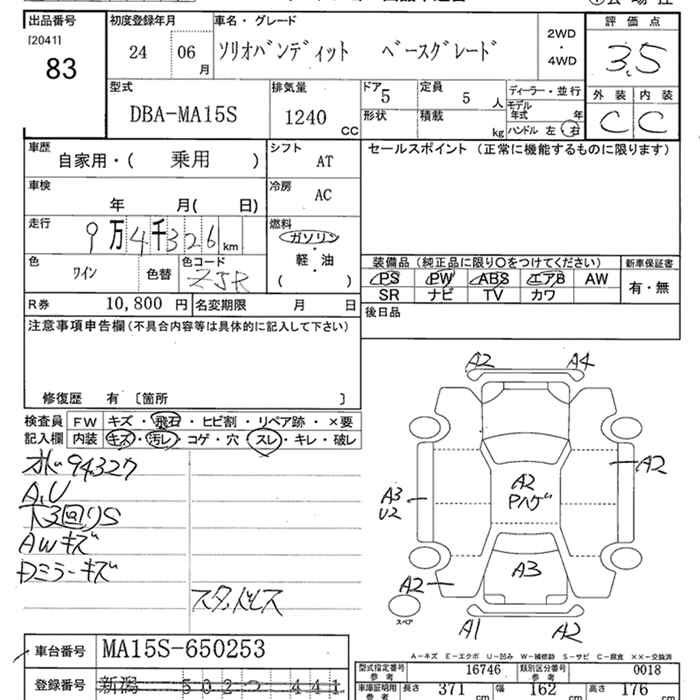 出品番号 初度登録年月 車名・グレード 評価点
[2041]
83 24 06月 ソリオバンディット ベースグレード 2WD・4WD 3.5
型式 排気量 ドア 定員 ディーラー・並行 外装 内装
DBA-MA15S 1240 CC 5 5人 モデル年式 年 C C
形状 積載 kg ハンドル 左・右
車歴 シフト セールスポイント(正常に機能するものに限ります)
自家用・( 乗用 ) AT
車検 冷房
年 月( 日) AC
走行 燃料
9万4千326km ガソリン
・
軽・油
( )
色 色替 色コード
ワイン ZJR
装備品(純正品に限り○をつけてください) 新車保証書
PS PW ABS エアB AW 有・無
SR ナビ TV カワ
R券 10,800円 名変期限 月 日 後日品
注意事項申告欄(不具合内容等は具体的に記入して下さい)
修復歴 有 〔箇所 〕
検査員 FW キズ・飛石・ヒビ割・リペア跡・×要
記入欄 内装 キズ・汚レ・コゲ・穴・スレ・キレ・破レ
94327
A,U
下3回りS
AWキズ
Dミラーキズ
スタッドレス
A2 A4
A2
A3
U2
A2
Pハゲ
A3
A2
スペア
A1 A2
A-キズ E-エクボ U-凹み W-補修跡 S-サビ C-腐食 XX-交換済
車台番号 MA15S-650253
登録番号 新潟 502つ 441
型式指定番号 参考 16746 類別区分番号 参考 0018
車庫証明用 参考 長さ 371 cm 幅 162 cm 高さ 176 cm